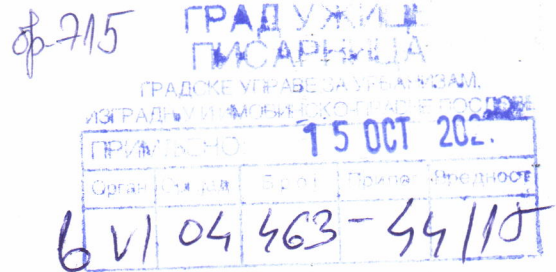 ГРАД УЖИЦЕ
ПИСАРНИЦА
ГРАДСКЕ УПРАВЕ ЗА УРБАНИЗАМ,
ИЗГРАДЊУ И ИМОВИНСКО-ПРАВНЕ ПОСЛОВЕ
ПРИМЉЕНО 15 OCT
Орган Прилог Вредност
6 VI 04 463-44/15